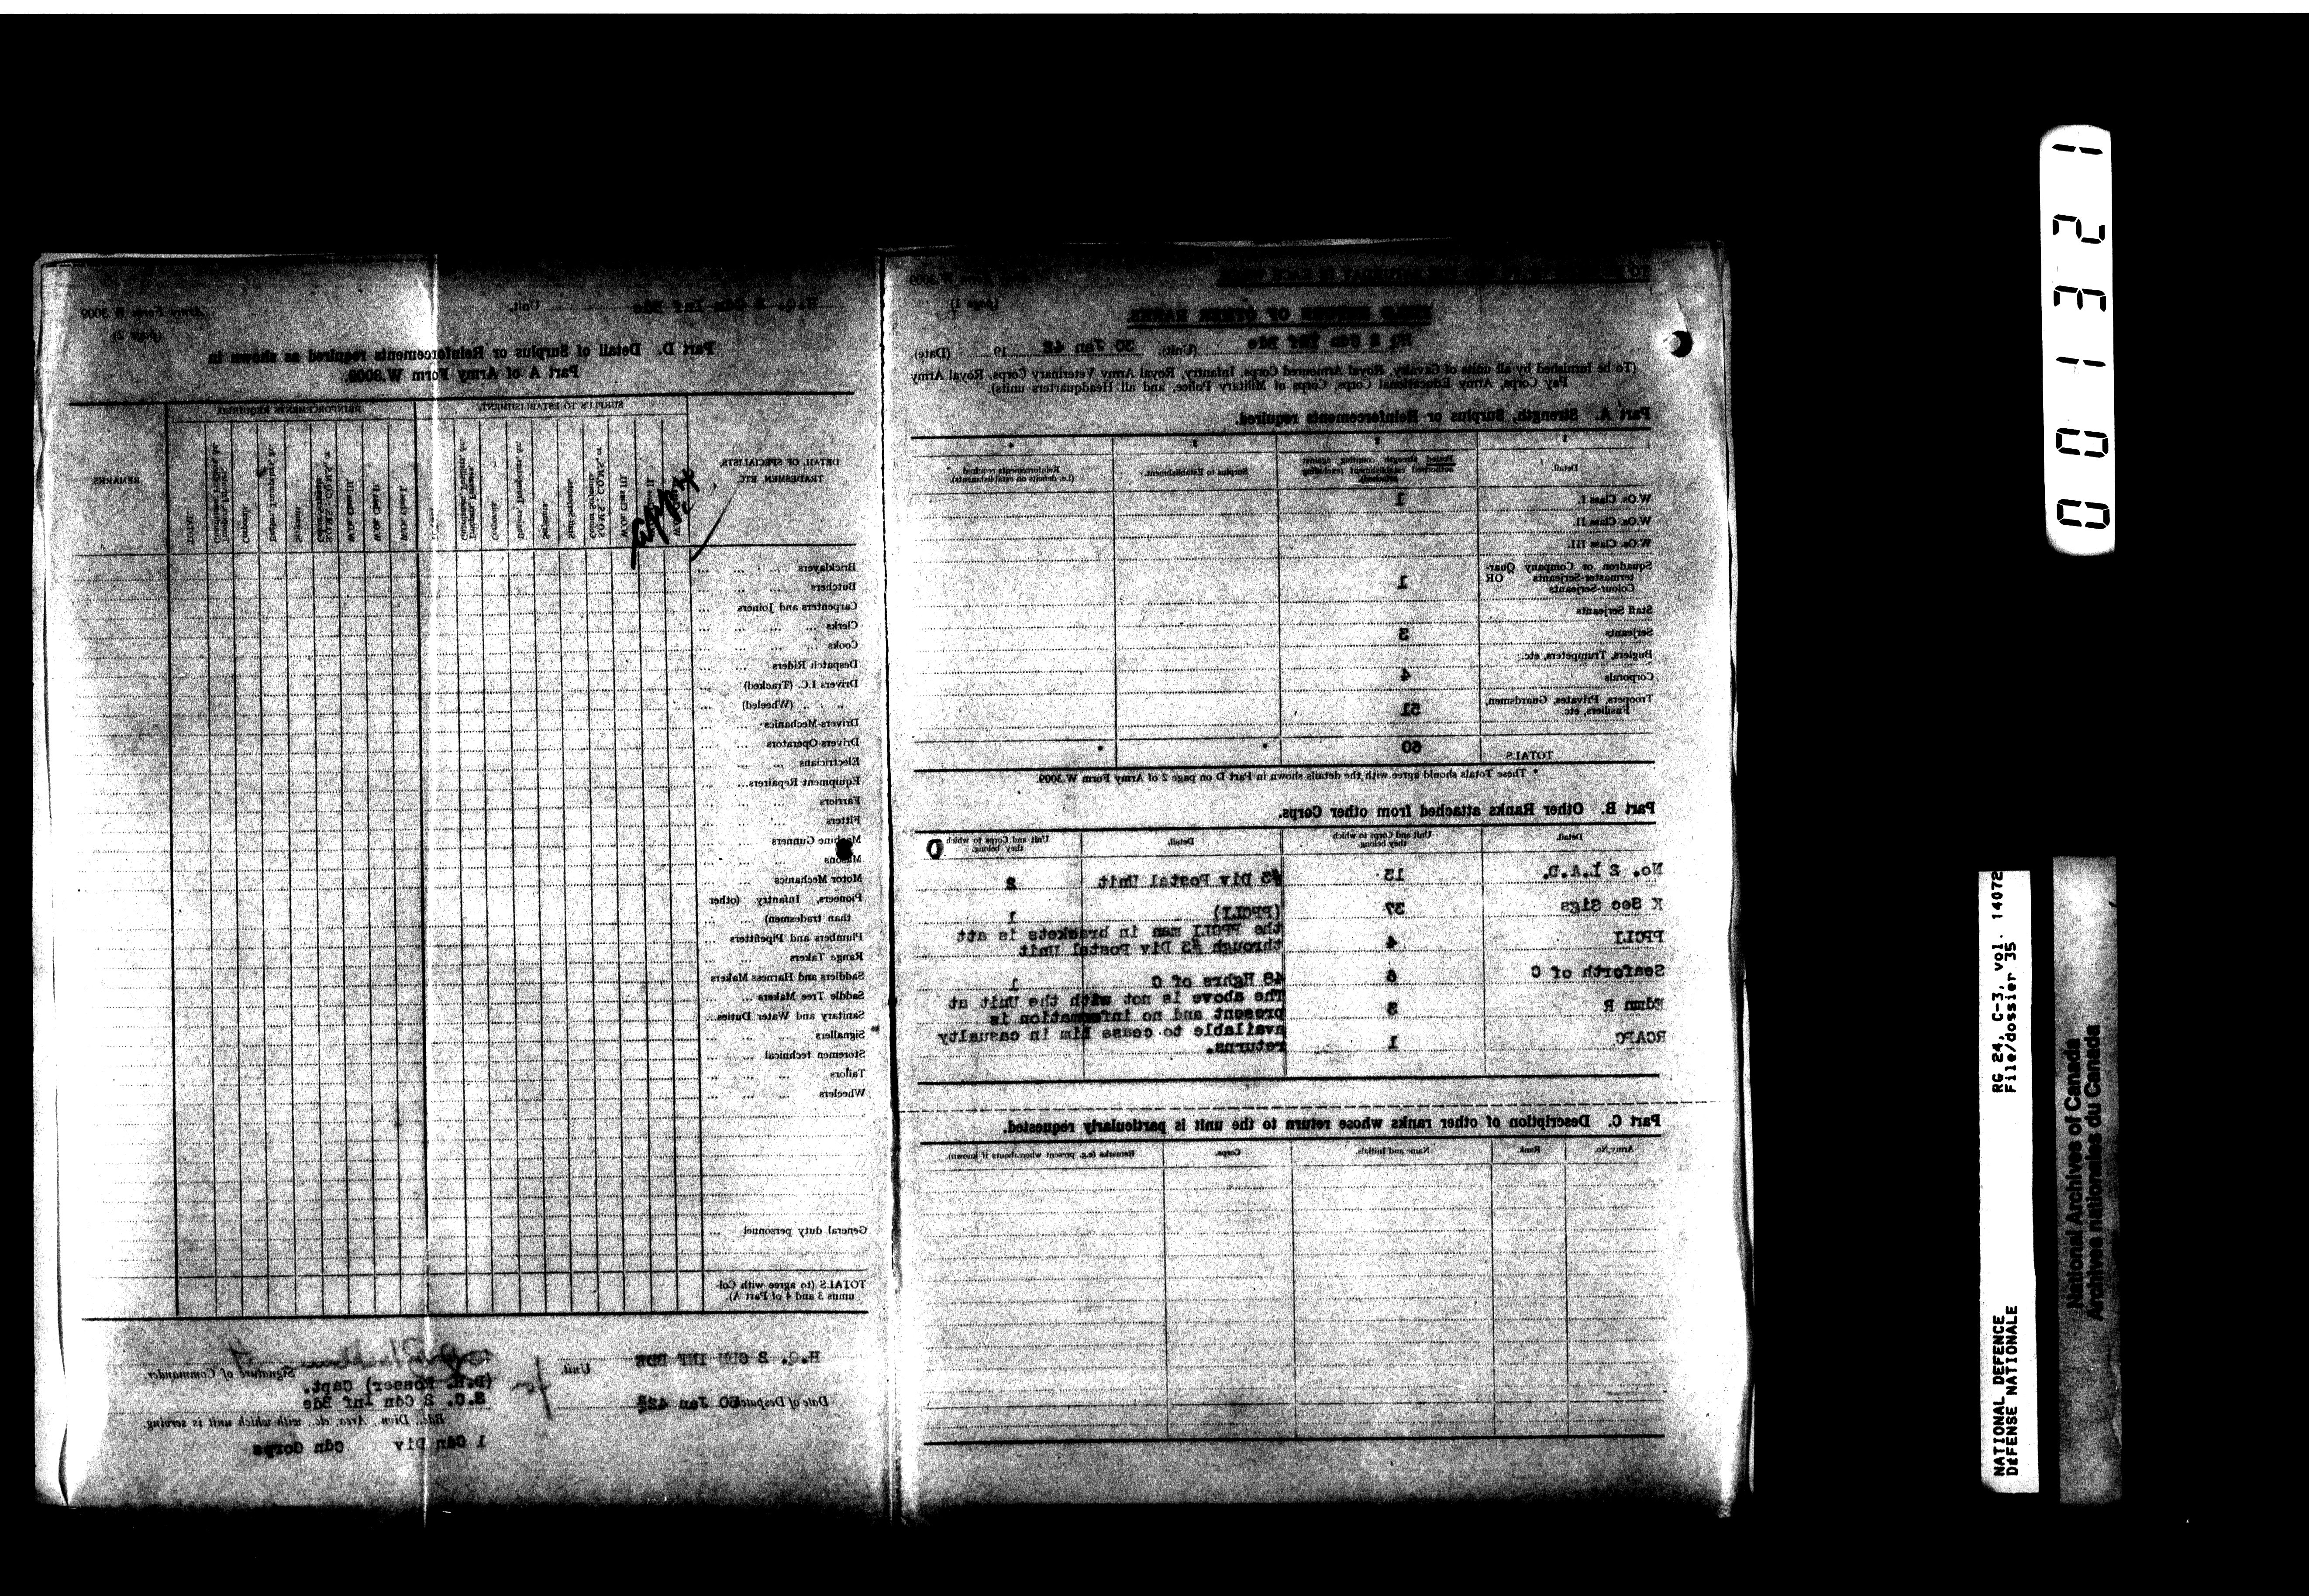 (page 1)
FIELD RETURN OF OTHER RANKS
HQ 2 Cdn Inf Bde (Unit). 30 Jan 42 19 (Date)
(To be furnished by all units of Cavalry, Royal Armoured Corps, Infantry, Royal Army Veterinary Corps, Royal Army
Pay Corps, Army Educational Corps, Corps of Military Police, and all Headquarters units).
Part A. Strength, Surplus or Reinforcements required.
1 2 3 4
Detail
Posted strength counting against
authorised establishment (excluding
attached).
Surplus to Establishment.
Reinforcements required
(i.e. deficits on establishments)
W.Os. Class I. 1
W.Os. Class II.
W.Os. Class III.
Squadron or Company Quar-
termaster-Serjeants OR
Colour-Serjeants 1
Staff Serjeants
Serjeants 3
Buglers, Trumpeters, etc.
Corporals 4
Troopers, Privates, Guardsmen,
Fusiliers, etc. 51
TOTALS 60 * *
* These Totals should agree with the details shown in Part D on page 2 of Army Form W.3009.
Part B. Other Ranks attached from other Corps.
Detail. Unit and Corps to which
they belong. Detail. Unit and Corps to which
they belong.
No. 2 L.A.D. 13 #3 Div Postal Unit 2
K Sec Sigs 37 (PPCLI) 1
the PPCLI man in brackets is att
PPCLI 4 through #3 Div Postal Unit
Seaforth of C 6 48 Hghrs of C 1
The above is not with the Unit at
Edmn R 3 present and no information is
available to cease him in casualty
RCAPC 1 returns.
Part C. Description of other ranks whose return to the unit is particularly requested.
Army No. Rank. Name and Initials. Corps. Remarks (e.g. present whereabouts if known).
H.Q. 2 Cdn Inf Bde Unit.
Army Form W 3009
(page 2)
Part D. Detail of Surplus or Reinforcements required as shown in
Part A of Army Form W.3009.
DETAIL OF SPECIALISTS,
TRADESMEN, ETC.
SURPLUS TO ESTABLISHMENT.
REINFORCEMENTS REQUIRED
REMARKS
Bricklayers
Butchers
Carpenters and Joiners
Clerks
Cooks
Despatch Riders
Drivers I.C. (Tracked)
" " (Wheeled)
Drivers-Mechanics
Drivers-Operators
Electricians
Equipment Repairers
Farriers
Fitters
Machine Gunners
Masons
Motor Mechanics
Pioneers, Infantry (other
than tradesmen)
Plumbers and Pipefitters
Range Takers
Saddlers and Harness Makers
Saddle Tree Makers
Sanitary and Water Duties
Signallers
Storemen technical
Tailors
Wheelers
General duty personnel
TOTALS (to agree with Col-
umns 3 and 4 of Part A).
H.Q. 2 CDN INF BDE Unit. for Signature of Commander.
(D.M. Rosser) Capt.
S.C. 2 Cdn Inf Bde
Date of Despatch 30 Jan 42
Bde., Divn., Area, etc., with which unit is serving.
1 Cdn Div Cdn Corps
001321
NATIONAL DEFENCE RG 24, C-3, vol. 14072
DÉFENSE NATIONALE File/dossier 35
National Archives of Canada
Archives nationales du Canada